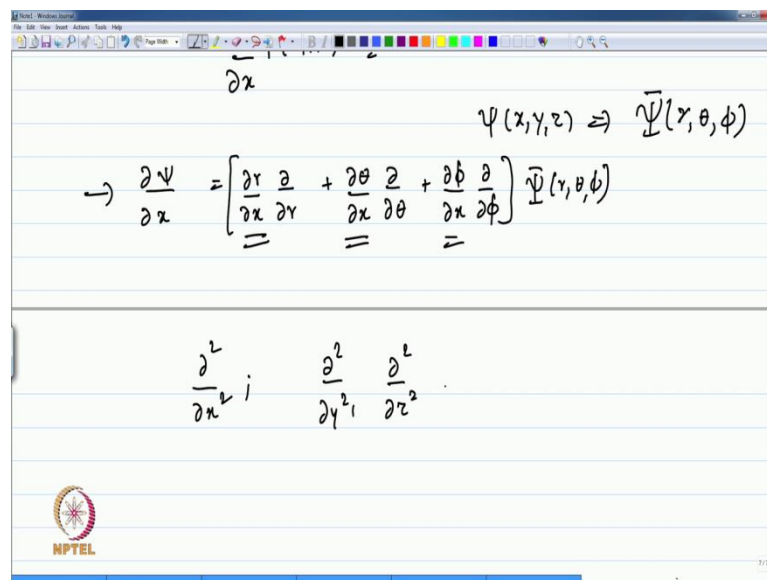 Note1 - Windows Journal
File Edit View Insert Actions Tools Help
Page Width
∂x
Ψ(x,y,z) ⇒ Ψ̄(r,θ,ϕ)
→ ∂Ψ/∂x = [∂r/∂x ∂/∂r + ∂θ/∂x ∂/∂θ + ∂ϕ/∂x ∂/∂ϕ] Ψ̄(r,θ,ϕ)
∂²/∂x² ; ∂²/∂y², ∂²/∂z² .
NPTEL